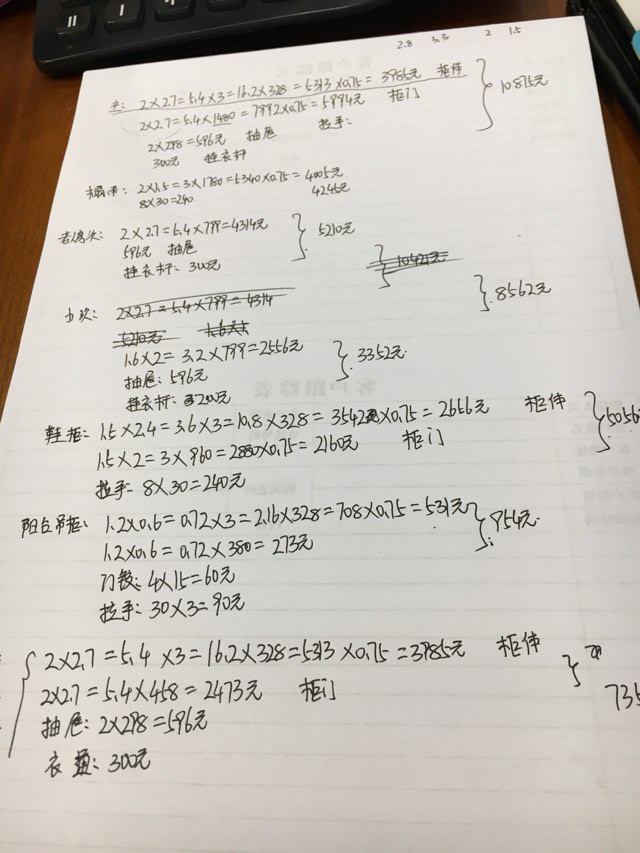 2.8 3.3 2 1.5
主: 2×2.7=5.4×3=16.2×328=5313×0.75=3985元 柜体
2×2.7=5.4×1480=7992×0.75=5994元 柜门
10875元
2×298=596元 抽屉 拉手:
300元 挂衣杆
榻榻米: 2×1.5=3×1780=5340×0.75=4005元
8×30=240 4245元
老房次: 2×2.7=5.4×799=4314元
596元 抽屉
5210元
挂衣杆: 300元
10421元
8562元
小次: 2×2.7=5.4×799=4314
5210元
1.6×2=3.2×799=2556元
抽屉: 596元
3352元
挂衣杆: 200元
鞋柜: 1.5×2.4=3.6×3=10.8×328=3542×0.75=2656元 柜体
1.5×2=3×960=2880×0.75=2160元 柜门
5056
拉手: 8×30=240元
阳台吊柜: 1.2×0.6=0.72×3=2.16×328=708×0.75=531元
1.2×0.6=0.72×380=273元
954元
门铰: 4×15=60元
拉手: 30×3=90元
2×2.7=5.4×3=16.2×328=5313×0.75=3985元 柜体
2×2.7=5.4×458=2473元 柜门
735
抽屉: 2×298=596元
300元